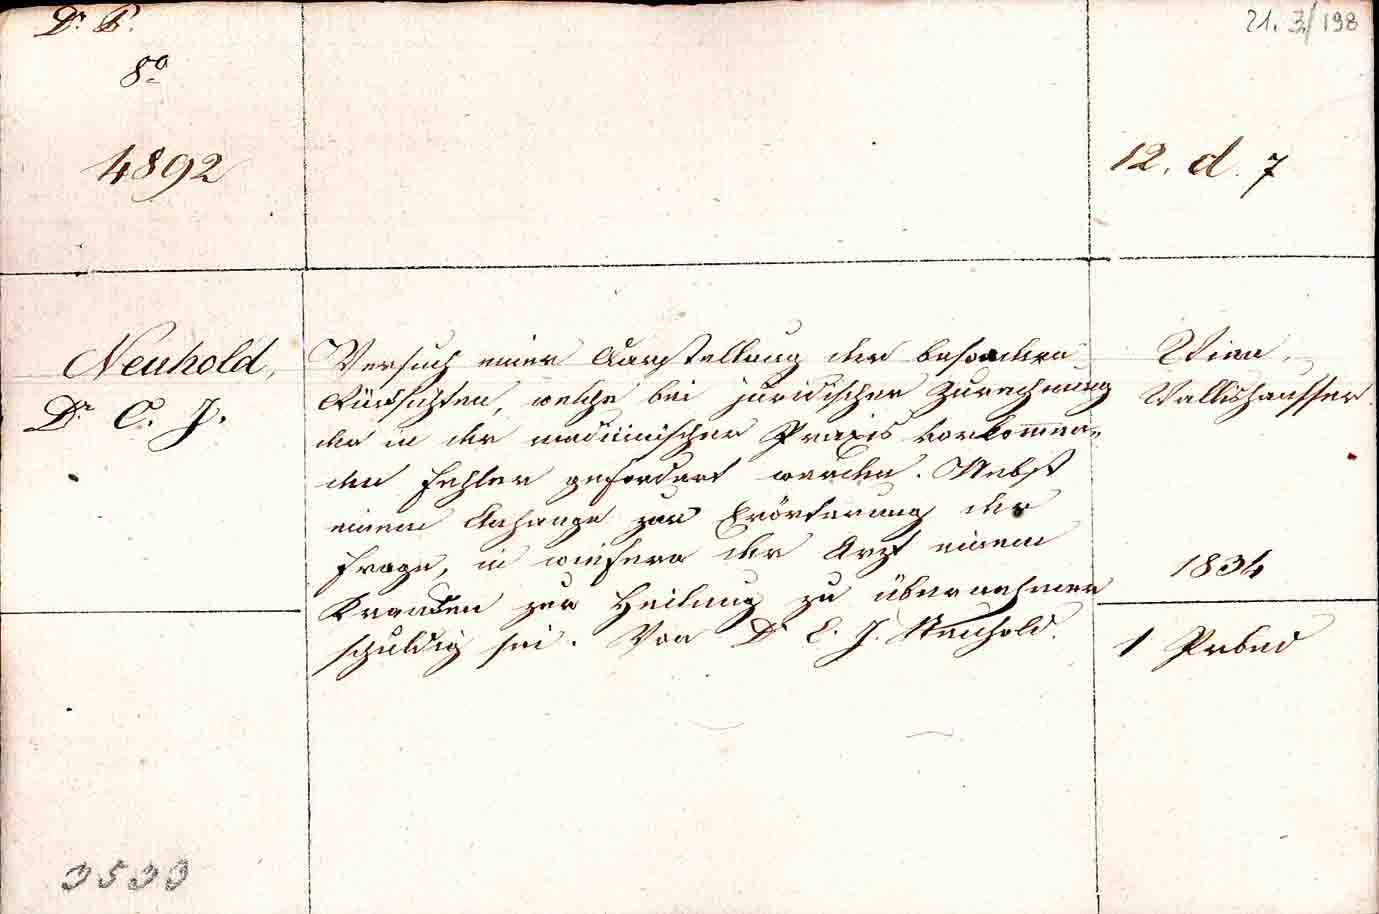 Dr. B.
21. 3/198
8o
4892
12. d. 7
Neuhold,
Dr C. J.
Versuch einer Darstellung der besondern
Rücksichten, welche bei juridischer Zurechnung
der in der medicinischen Praxis vorkommen-
den Fehler gefordert werden. Nebst
einem Anhange zur Erörterung der
Frage, in wiefern der Arzt einen
Kranken zur Heilung zu übernehmen
schuldig sei. Von Dr C. J. Neuhold.
Wien,
Wallishausser
1834
1 Prbnd
3533